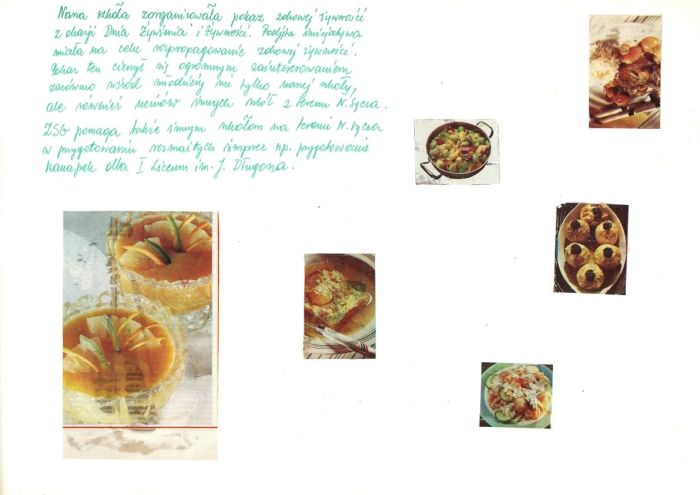 Nasza szkoła zorganizowała pokaz zdrowej żywności
z okazji Dnia Żywienia i Żywności. Podjęta inicjatywa
miała na celu rozpropagowanie zdrowej żywności.
Pokaz ten cieszył się ogromnym zainteresowaniem
zarówno wśród młodzieży nie tylko naszej szkoły,
ale również uczniów innych szkół z terenu N. Sącza.
ZSG pomaga także innym szkołom na terenie N. Sącza
w przygotowaniu rozmaitych imprez np. przygotowanie
kanapek dla I Liceum im. J. Długosza.